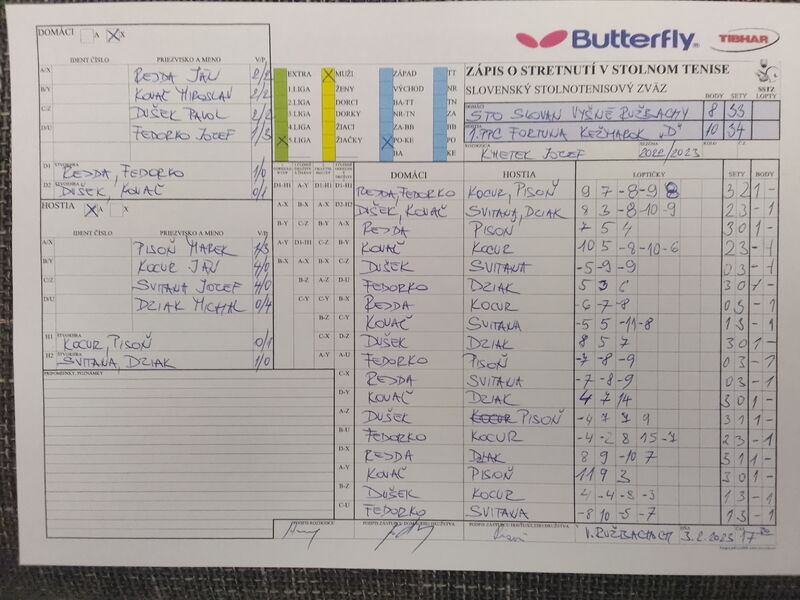 DOMÁCI A X
Butterfly TIBHAR
IDENT ČÍSLO PRIEZVISKO A MENO V/P
A/X REJDA JÁN 2/2
B/Y KOVAĽ MIROSLAV 2/2
C/Z DUŠEK PAVOL 2/2
D/U FEDORKO JOZEF 1/3
D1 ŠTVORHRA REJDA, FEDORKO 1/0
D2 DUŠEK, KOVAČ 0/1
HOSTIA A X
IDENT ČÍSLO PRIEZVISKO A MENO V/P
A/X PISOŇ MAREK 1/3
B/Y KOCUR JÁN 4/0
C/Z SVITANA JOZEF 4/0
D/U DZIAK MICHAL 0/4
H1 ŠTVORHRA KOCUR, PISOŇ 0/1
H2 SVITANA, DZIAK 1/0
PRIPOMIENKY, POZNÁMKY
EXTRA MUŽI ZÁPAD TT
1.LIGA ŽENY VÝCHOD NR
2.LIGA DORCI BA-TT TN
3.LIGA DORKY NR-TN ZA
4.LIGA ŽIACI ZA-BB BB
5.LIGA ŽIAČKY PO-KE PO
BA KE
ZÁPIS O STRETNUTÍ V STOLNOM TENISE
SLOVENSKÝ STOLNOTENISOVÝ ZVÄZ SSTZ
BODY SETY LOPTY
DOMÁCI STO SLOVAN VYŠNÉ RUŽBACHY 8 33
1. PPC FORTUNA KEŽMAROK "D" 10 34
KMETEK JOZEF SEZÓNA 2022/2023 KOLO
DOMÁCI HOSTIA LOPTIČKY SETY BODY
REJDA, FEDORKO KOCUR, PISOŇ 9 7 -8 -9 8 3 2 1 -
DUŠEK, KOVAČ SVITANA, DZIAK 8 3 -8 -10 -9 2 3 - 1
REJDA PISOŇ 7 5 4 3 0 1 -
KOVAČ KOCUR 10 5 -8 -10 -6 2 3 - 1
DUŠEK SVITANA -5 -9 -9 0 3 - 1
FEDORKO DZIAK 5 3 6 3 0 1 -
REJDA KOCUR -6 -7 -8 0 3 - 1
KOVAČ SVITANA -5 5 -11 -8 1 3 - 1
DUŠEK DZIAK 8 5 7 3 0 1 -
FEDORKO PISOŇ -7 -8 -9 0 3 - 1
REJDA SVITANA -7 -8 -9 0 3 - 1
KOVAČ DZIAK 4 7 14 3 0 1 -
DUŠEK PISOŇ -4 7 7 9 3 1 1 -
FEDORKO KOCUR -4 -2 8 15 -7 2 3 - 1
REJDA DZIAK 8 9 -10 7 3 1 1 -
KOVAČ PISOŇ 11 9 3 3 0 1 -
DUŠEK KOCUR 4 -4 -8 -3 1 3 - 1
FEDORKO SVITANA -8 10 -5 -7 1 3 - 1
PODPIS ROZHODCU PODPIS ZÁSTUPCU DOMÁCEHO DRUŽSTVA PODPIS ZÁSTUPCU HOSŤUJÚCEHO DRUŽSTVA
V. RUŽBACHACH 3.2.2023 17 00